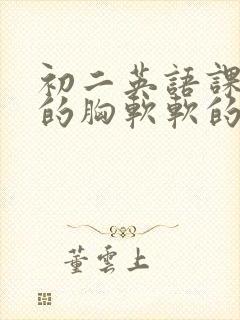 初二英語課
的胸軟軟的
董雲上